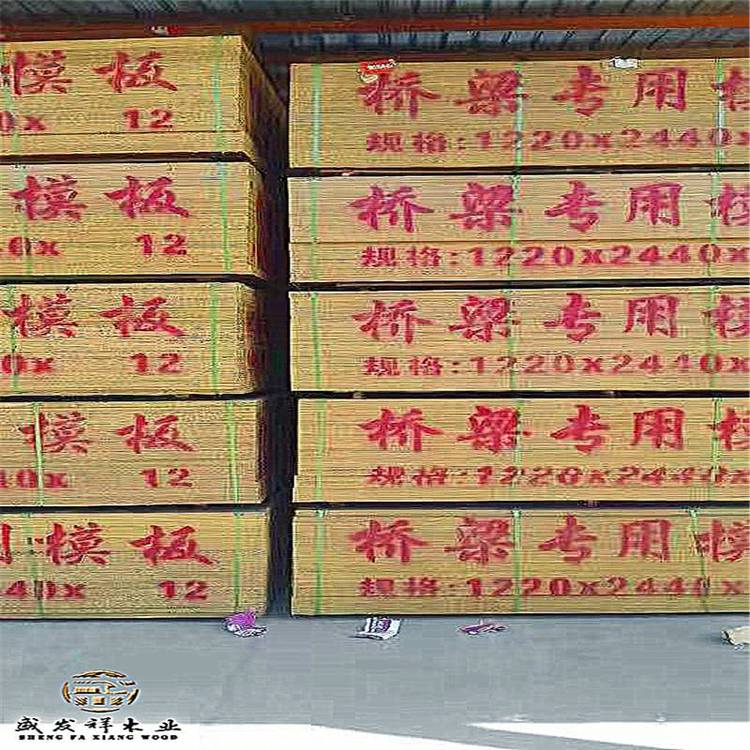 模板
0x 12
模板
40x 12
模板
0x 12
模板
40x 12
用模板
40x 12
桥梁专用模
规格:1220x2440x
桥梁专用模
规格:1220x2440x
桥梁专用模
规格:1220x2440x
桥梁专用模
规格:1220x2440x
桥梁专用模
规格:1220x2440x
盛发祥木业
SHENG FA XIANG WOOD